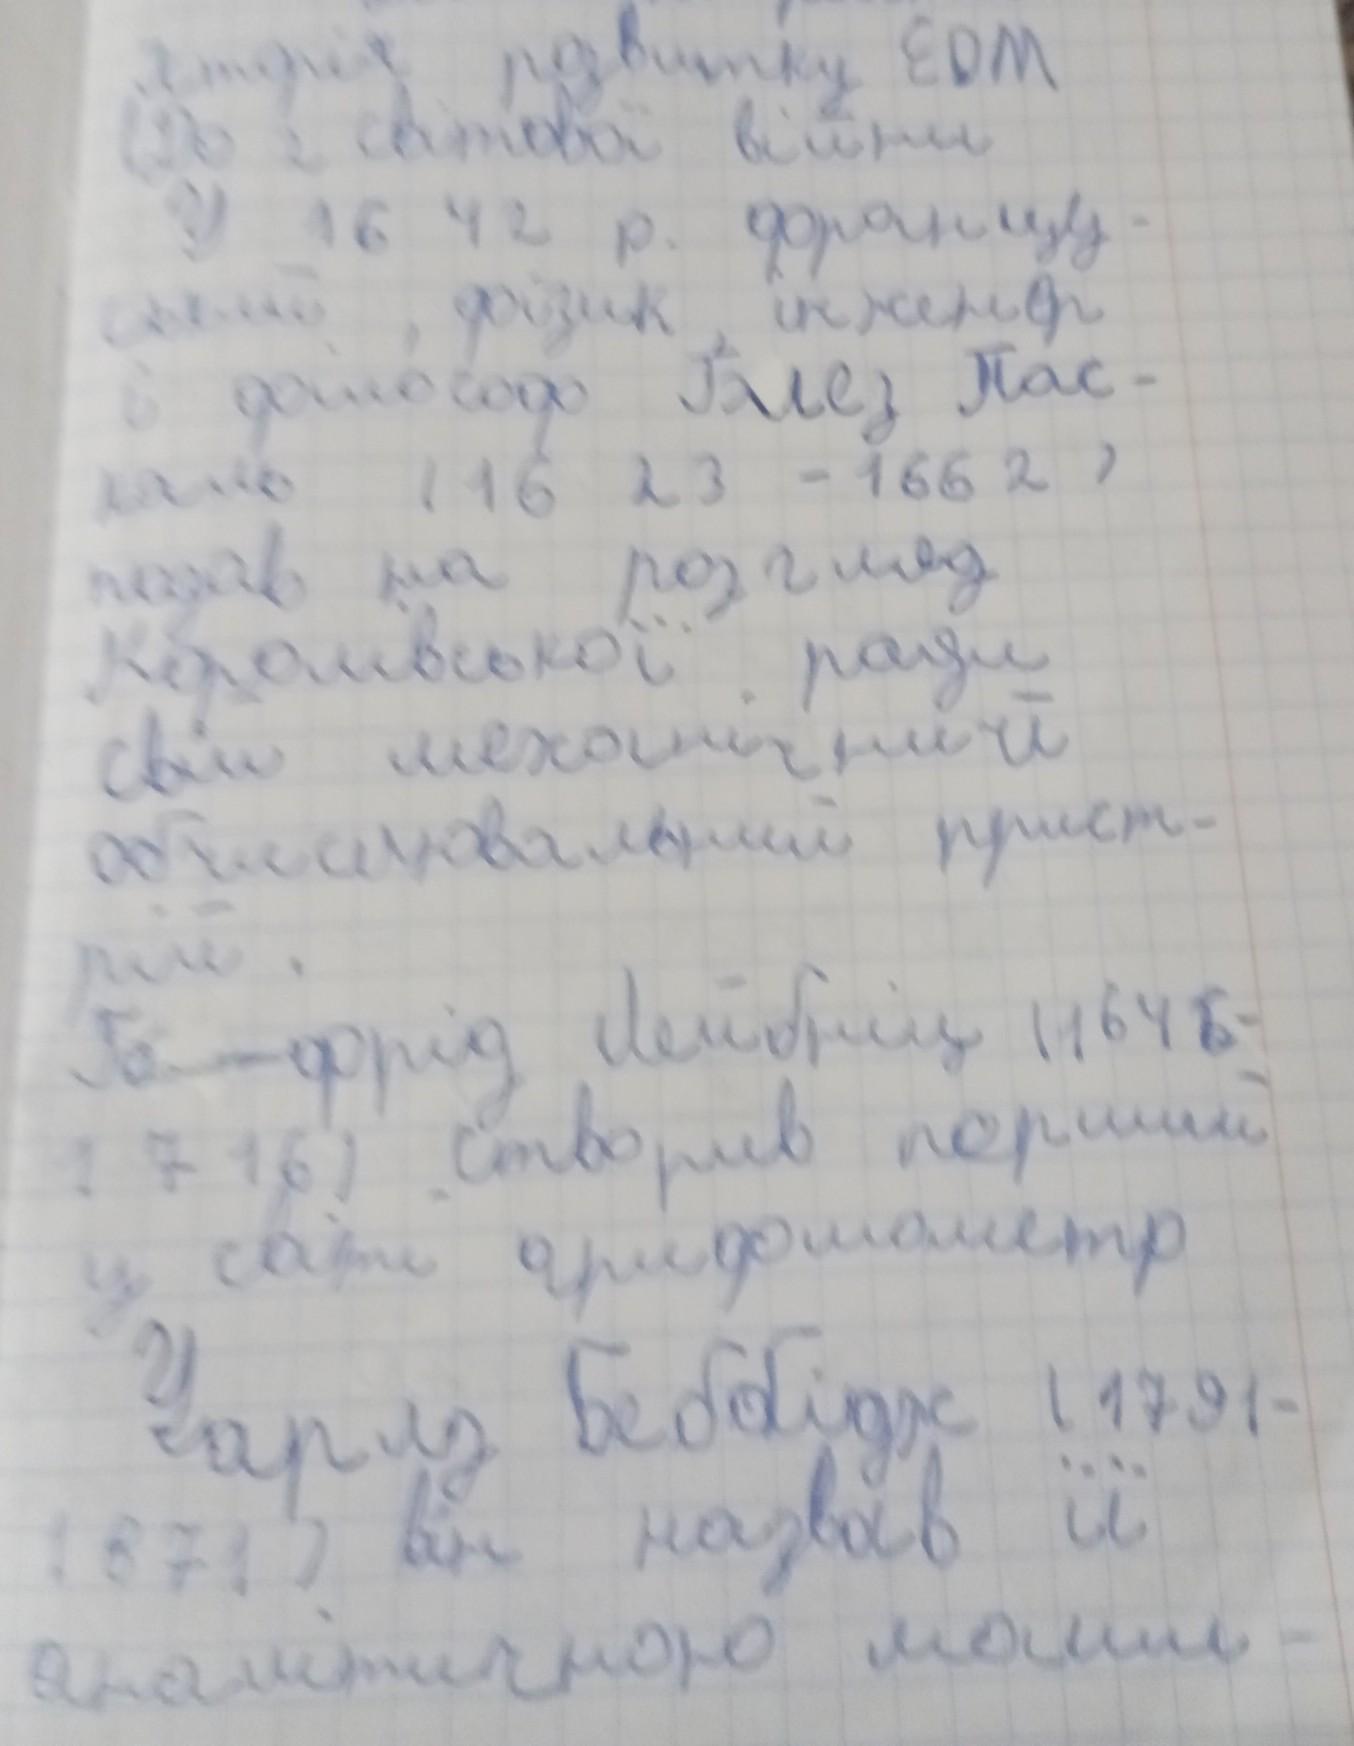 Історія розвитку ЕОМ
(До 2 світової війни
У 1642 р. францу-
ський, фізик, інженер
і філософ Блез Пас-
каль (1623-1662)
подав на розгляд
Королівської ради
свій механічний
обчислювальний прист-
рій.
фрід Лейбніц (1646-
1716) створив перший
у світі арифмометр
Чарлз Беббідж (1791-
1871) він назвав її
аналітичною маши-